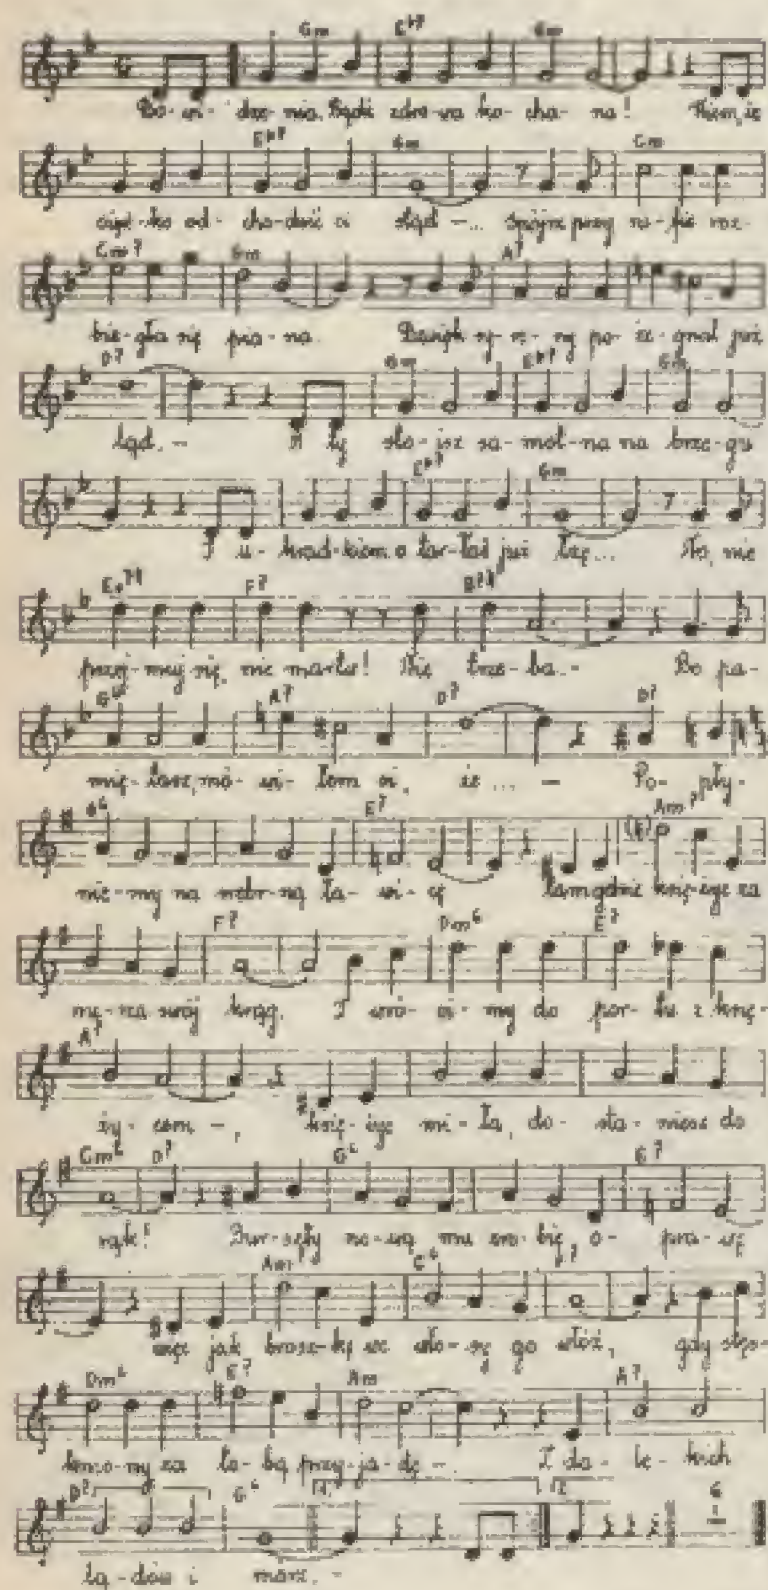 Gm E♭7 Gm
Do-wi-dze-nia, bądź zdro-wa ko-cha-na! Wiem, że
E♭7 Gm Cm
cięż-ko od-cho-dzić ci stąd –... Spójrz przy ra-fie roz-
Cm7 Gm A7
bie-gła się pia-na. Dźwięk sy-re-ny po-że-gnał już
D7 Gm E♭7 Gm
ląd. – A ty sto-isz sa-mot-na na brze-gu
E♭7 Gm
I u-krad-kiem o tar-łaś już łzę... No, nie
F7
przej-muj się, nie martw! Nie trze-ba. – Bo pa-
A7 D7 D7
mię-tasz, mó-wi-łem ci, że... – Po-pły-
G6 E7 Am7
nie-my na srebr-ną ła-wi-cę tam gdzie księ-życ za
F7 Dm6 E7
swój krąg. I wró-ci-my do por-tu z księ-
A7
ży-cem –, księ-życ mi-ła, do-sta-niesz do
Cm6 D7 G6 E7
rąk! no-wą mu zro-bię, o-pra-wę
Am7 G6 F7
więc jak brosz-kę we wło-sy go włóż, gdy stęs-
Dm6 E7 Am A7
knio-ny za to-bą przy-ja-dę – Z da-le-kich
D7 G6 1. 2. G
lą-dów i mórz. –